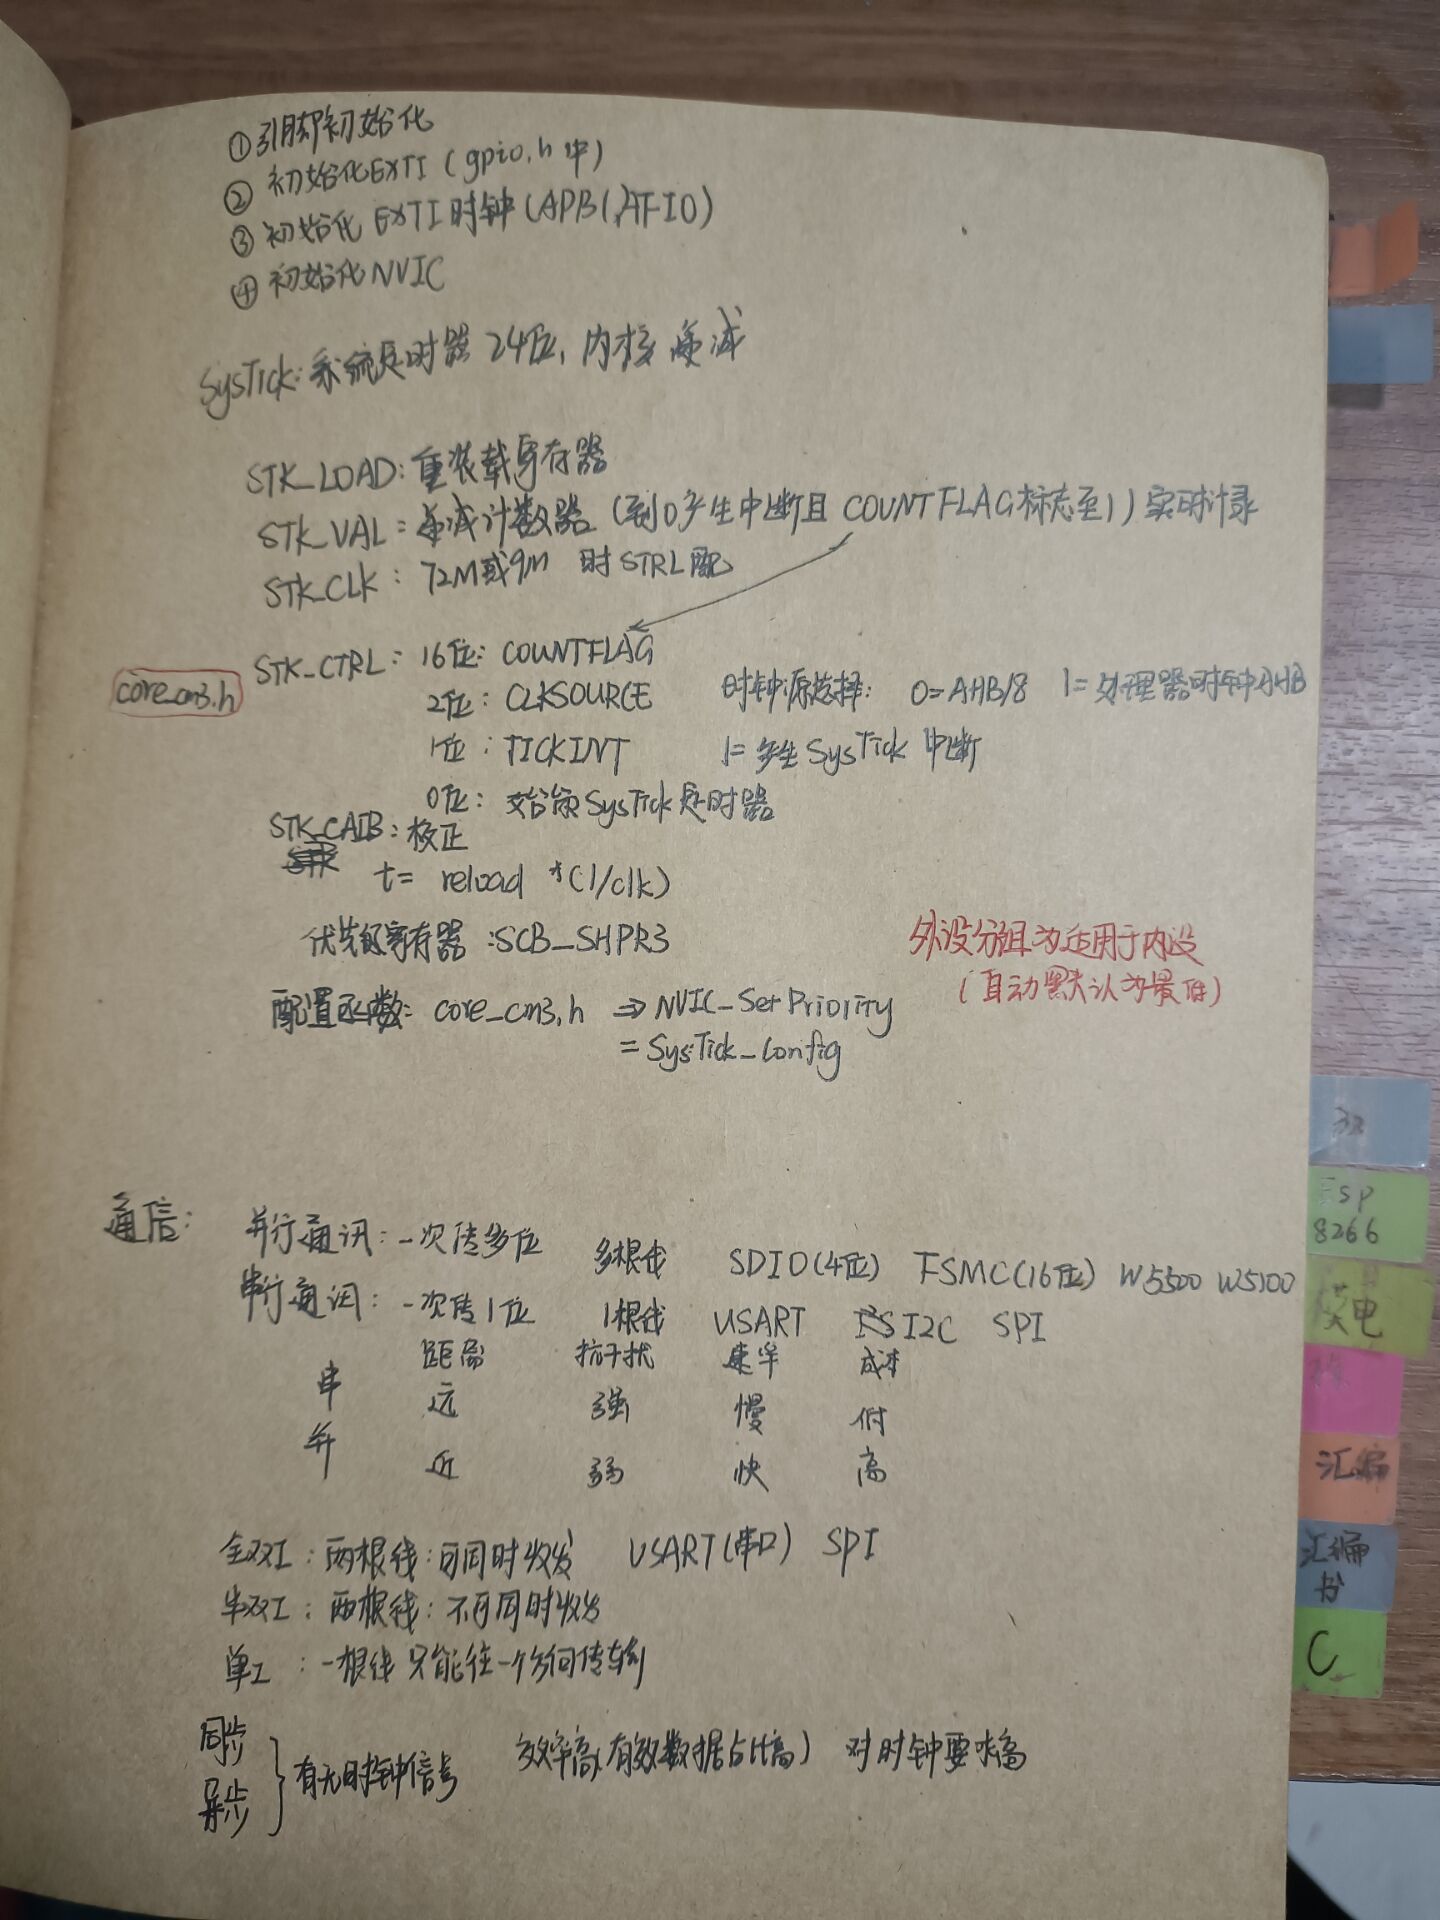 ①引脚初始化
②初始化EXTI(gpio.h中)
③初始化EXTI时钟(APB1,AFIO)
④初始化NVIC
SysTick:系统定时器 24位,内核 递减
STK_LOAD:重装载寄存器
STK_VAL:递减计数器(到0产生中断且COUNTFLAG标志至1)实时记录
STK_CLK:72M或9M 时STRL配
STK_CTRL:16位:COUNTFLAG
core_cm3.h
2位:CLKSOURCE 时钟源选择: 0=AHB/8 1=处理器时钟AHB
1位:TICKINT 1=产生SysTick中断
0位:始能SysTick定时器
STK_CAIB:校正
t= reload *(1/clk)
优先级寄存器:SCB_SHPR3
外设分组为适用于内设
(自动默认为最低)
配置函数:core_cm3.h ⇒NVIC_SetPriority
=SysTick_Config
通信: 并行通讯:一次传多位 多根线 SDIO(4位) FSMC(16位) W5500 W5100
串行通讯:一次传1位 1根线 USART I2C SPI
距离 抗干扰 速率 成本
串 远 强 慢 低
并 近 弱 快 高
全双工:两根线:可同时收发 USART(串口) SPI
半双工:两根线:不可同时收发
单工:一根线 只能往一个方向传输
同步
异步 }有无时钟信号 效率高(有效数据占比高) 对时钟要求高
32
Esp
8266
模电
汇编
汇编
书
C